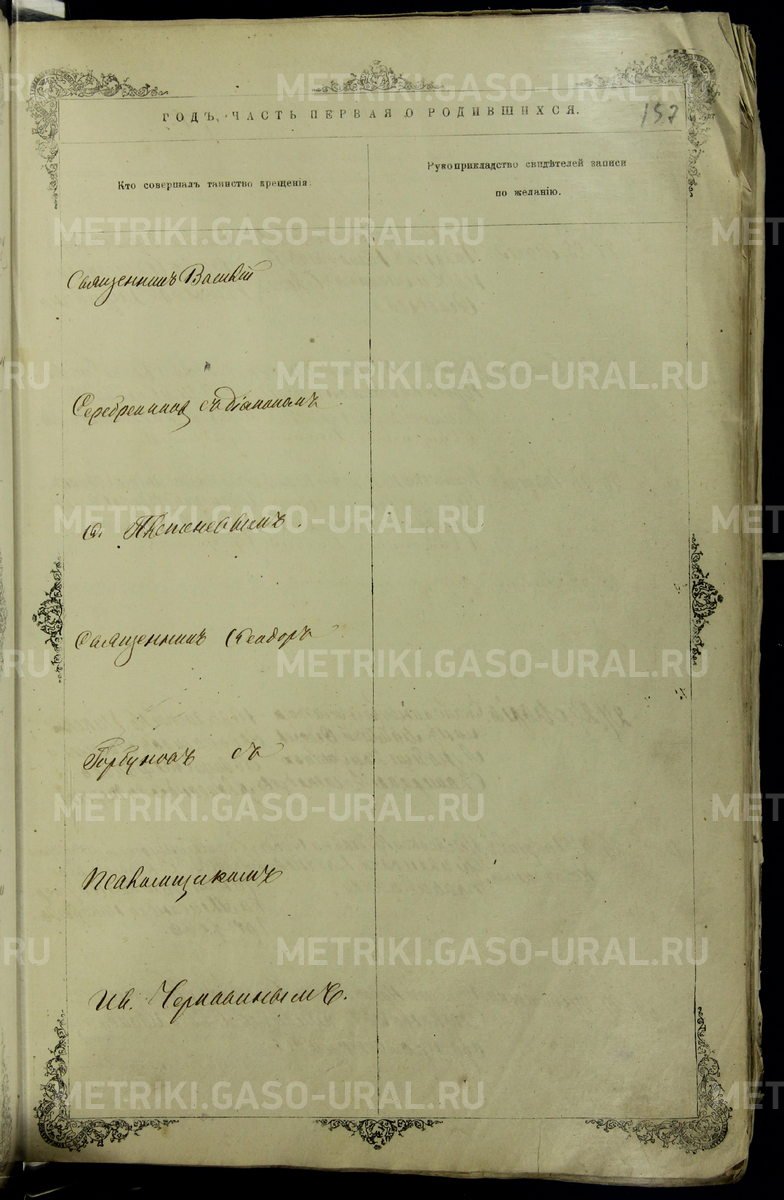 ГОДЪ, ЧАСТЬ ПЕРВАЯ О РОДИВШИХСЯ.
157
Кто совершалъ таинство крещенія.
Рукоприкладство свидѣтелей записи
по желанію.
Священникъ Василій
Серебренниковъ съ діакономъ
Священникъ Ѳеодоръ
Горбуновъ съ
Псаломщикомъ
Ив. Чернавинымъ.
METRIKI.GASO-URAL.RU